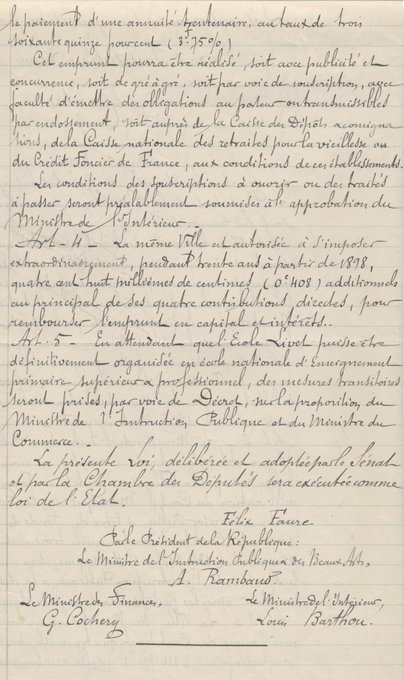 le paiement d'une annuité trentenaire, au taux de trois
soixante quinze pour cent (3f.75%)
Cet emprunt pourra être réalisé, soit avec publicité et
concurrence, soit de gré à gré, soit par voie de souscription, avec
faculté d'émettre des obligations au porteur ou transmissibles
par endossement, soit auprès de la Caisse des Dépôts & consigna
tions, de la Caisse nationale des retraites pour la vieillesse ou
du Crédit Foncier de France, aux conditions de ces établissements.
Les conditions des souscriptions à ouvrir ou des traités
à passer seront préalablement soumises à l'approbation du
Ministre de l'Intérieur.
Art - 4 - La même Ville est autorisée à s'imposer
extraordinairement, pendant trente ans à partir de 1898,
quatre cent huit millièmes de centimes (0c408) additionnels
au principal de ses quatre contributions directes, pour
rembourser l'emprunt en capital et intérêts..
Art. 5 - En attendant que l'Ecole Livet puisse être
définitivement organisée en école nationale d'Enseignement
primaire supérieur & professionnel, des mesures transitoires
seront prises, par voie de Décret, sur la proposition du
Ministre de l'Instruction Publique et du Ministre du
Commerce..
La présente Loi, délibérée et adoptée par le Sénat
et par la Chambre des Députés sera exécutée comme
loi de l'Etat.
Félix Faure
Par le Président de la République:
Le Ministre de l'Instruction Publique & des Beaux Arts,
A. Rambaud
Le Ministre des Finances,
G. Cochery
Le Ministre de l'Intérieur,
Louis Barthou.